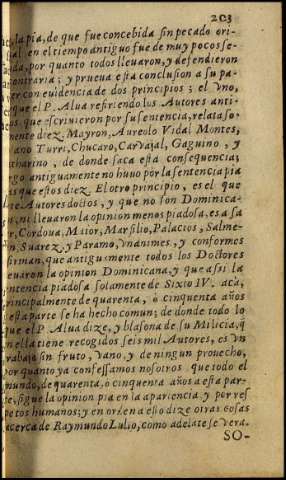 203
la pia, de que fue concebida sin pecado ori-
en el tiempo antiguo fue de muy pocos se-
da, por quanto todos lleuaron, y defendieron
ontraria; y prueua esta conclusion a su pa-
cer con euidencia de dos principios; el vno,
que el P. Alua refiriendo los Autores anti-
os que escriuieron por su sentencia, relata so-
mente diez, Mayron, Aureolo Vidal Montes,
ano Turri, Chucaro, Carvajal, Gaguino, y
tharino, de donde saca esta consequencia;
go antiguamente no huuo por la sentencia pia
s que estos diez. El otro principio, es el que
e Autores doctos, y que no son Dominica-
, ni lleuaron la opinion menos piadosa, es a sa
r, Cordoua, Maior, Marsilio, Palacios, Salme-
n, Suarez, y Paramo, vnanimes, y conformes
firman, que antiguamente todos los Doctores
euaron la opinion Dominicana, y que assi la
entencia piadosa solamente de Sixto IV. acà,
rincipalmente de quarenta, ò cinquenta años
esta parte se ha hecho comun; de donde todo lo
que el P. Alua dize, y blasona de su Milicia, q̃
n ella tiene recogidos seis mil Autores, es vn
rabajo sin fruto, vano, y de ningun prouecho,
or quanto ya confessamos nosotros que todo el
mundo, de quarenta, ò cinquenta años a esta par-
te, sigue la opinion pia en la apariencia y por res
petos humanos; y en orden a esto dize otras cosas
acerca de Raymundo Lulio, como adelãte se verà.
SO-